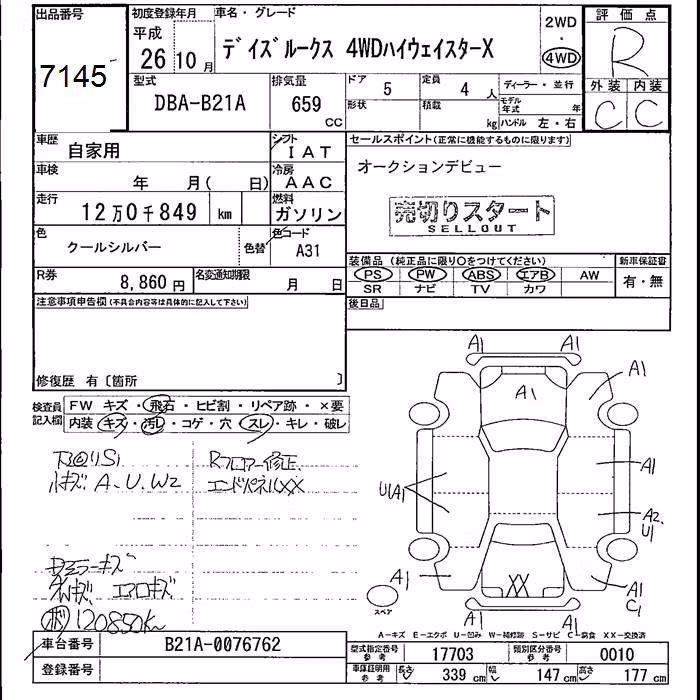 出品番号
7145
初度登録年月
平成
26年10月
車名・グレード
デイズルークス 4WDハイウェイスターX
2WD
・
4WD
評価点
R
外装 内装
C C
型式
DBA-B21A
排気量
659
CC
ドア 5
形状
定員 4人
積載 kg
ディーラー・並行
モデル年式 年
ハンドル 左・右
車歴 自家用
シフト IAT
車検 年 月( 日)
冷房 AAC
走行 12万0千849 km
燃料 ガソリン
色 クールシルバー
色替
色コード A31
R券 8,860円
名変通知期限 月 日
セールスポイント(正常に機能するものに限ります)
オークションデビュー
売切りスタート
SELLOUT
装備品(純正品に限り〇をつけてください)
新車保証書
PS PW ABS エアB AW
SR ナビ TV カワ
有・無
後日品
注意事項申告欄(不具合内容等は具体的に記入して下さい)
修復歴 有〔箇所 〕
検査員記入欄
FW キズ・飛石・ヒビ割・リペア跡・×要
内装・キズ・汚レ・コゲ・穴・スレ・キレ・破レ
下回りS1
小キズ A、U、W2
Rフロアー修正
エンドパネルXX
ドアミラーキズ
AWキズ エアロキズ
120850km
A1 A1
A1
A1
U1A1
A1
A2
U1
A1
XX
A1
C1
A1 A1
スペア
A-キズ E-エクボ U-凹み W-補修跡 S-サビ C-腐食 XX-交換済
車台番号 B21A-0076762
登録番号
型式指定番号 参考 17703
類別区分番号 参考 0010
車庫証明用 参考 長さ 339cm 幅 147cm 高さ 177cm